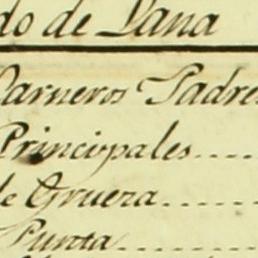 do de Lana
Carneros Padre
Principales....
de Grueza......
Punta.......